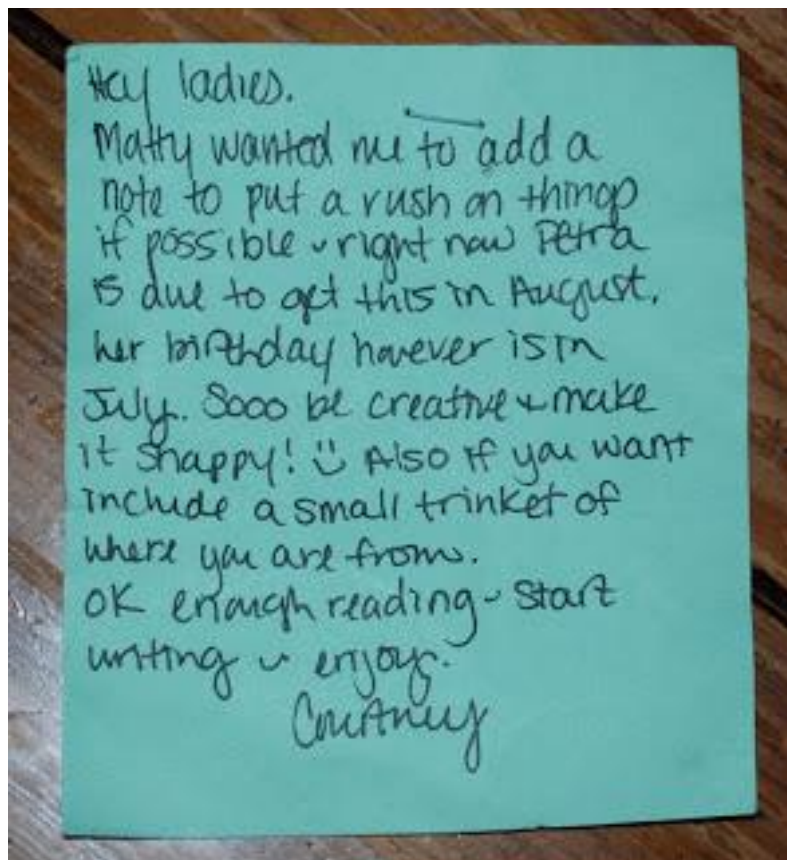 Hey ladies.
Matty wanted me to add a
note to put a rush on things
if possible - right now Petra
is due to get this in August.
her birthday however is in
July. Sooo be creative + make
it snappy! Also if you want
include a small trinket of
where you are from.
OK enough reading - start
writing - enjoy.
Courtney